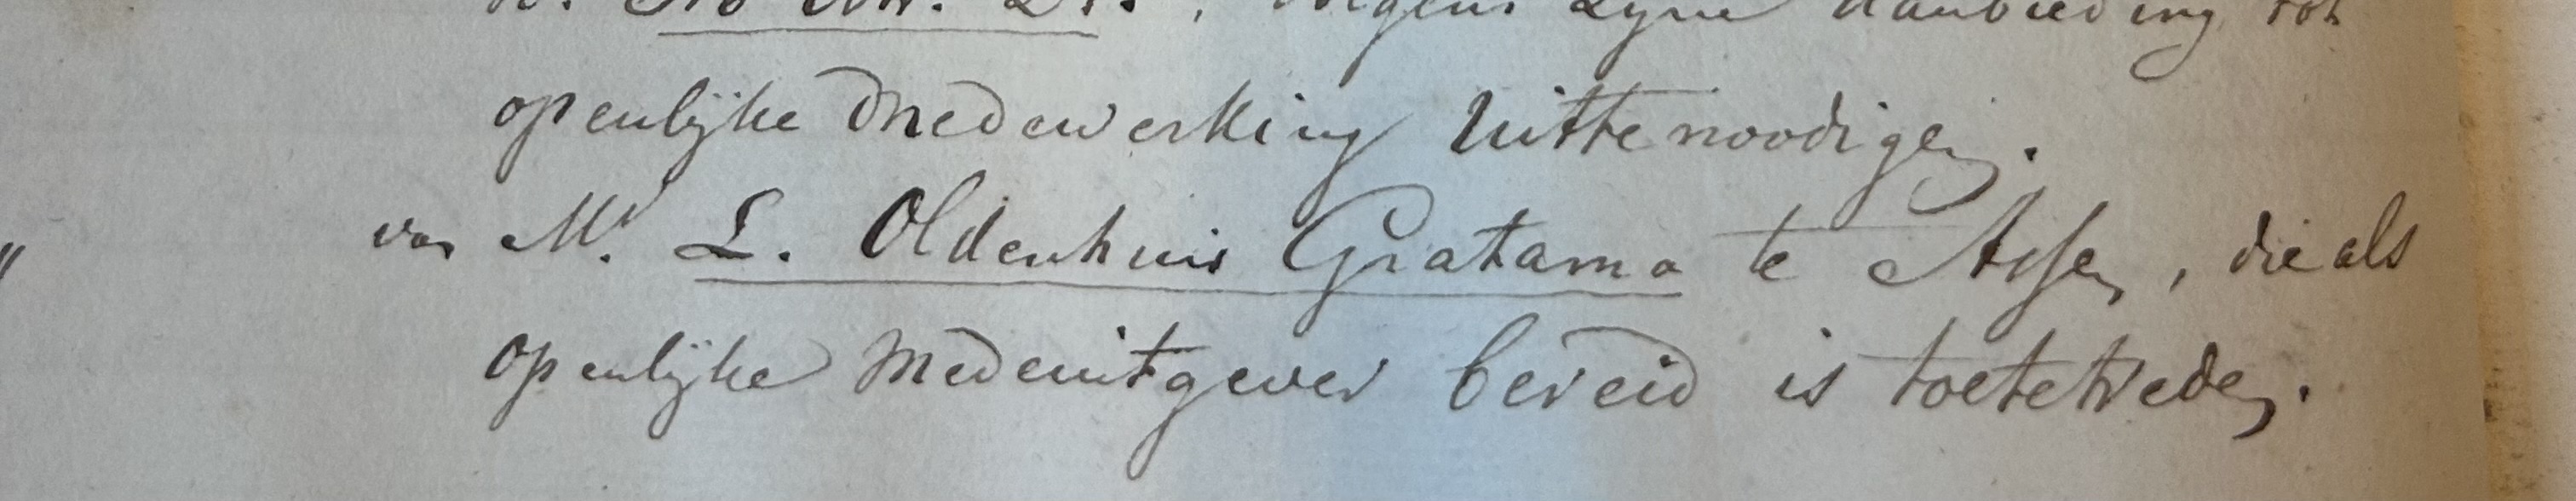 , volgens zijne aanbieding tot
openlijke Medewerking uittenoodigen.
" van Mr. L. Oldenhuis Gratama te Assen, die als
openlijke Medeuitgever bereid is toetetreden.